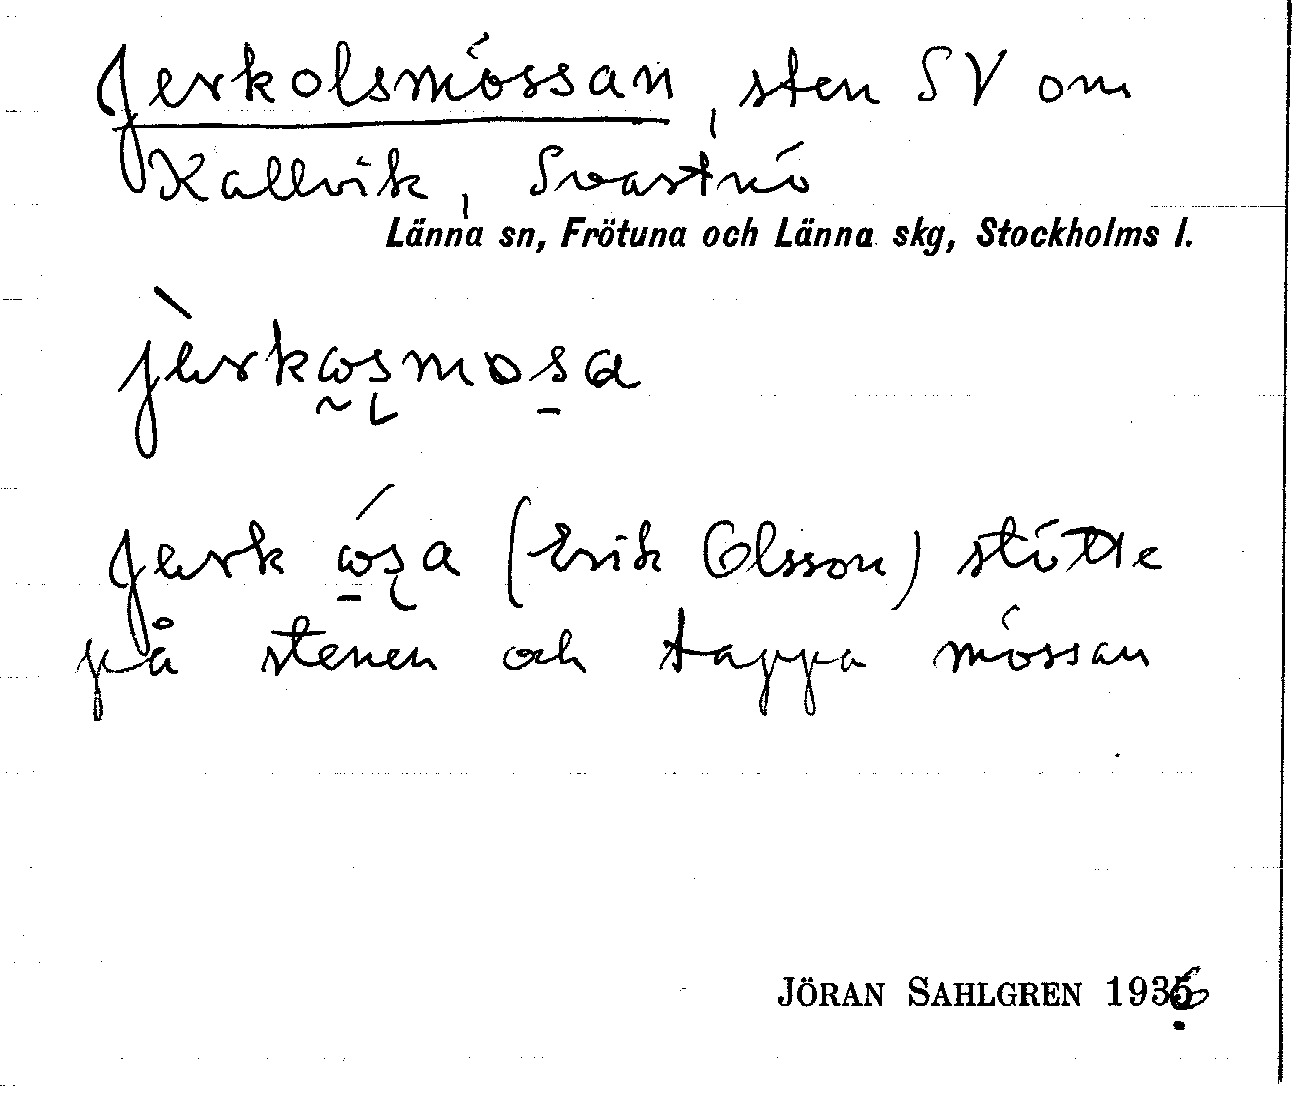 Jerkolsmössan, sten SV om
Kallvik, Svartnö
Länna sn, Frötuna och Länna skg, Stockholms l.
jerkωsmosa
Jerk ωsa (Erik Olsson) stötte
på stenen och tappa mössan
JÖRAN SAHLGREN 1936